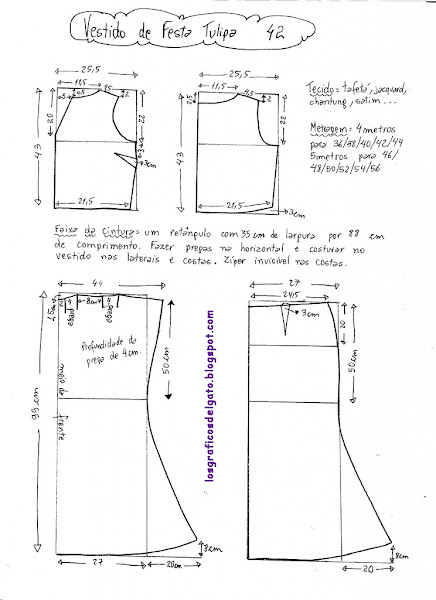 Vestido de Festa Tulipa 42
25,5
11,5
4,5
2
5
4,5
20
22
43
3
3cm
21,5
25,5
11,5
4,5
2
2,5
22
43
21,5
3cm
Tecido= tafetá, jacquard,
shantung, cetim...
Metragem= 4 metros
para 36/38/40/42/44
5 metros para 46/
48/50/52/54/56
Faixa da Cintura= um retângulo com 35 cm de largura por 88 cm
de comprimento. Fazer pregas na horizontal e costurar no
vestido nas laterais e costas. Zíper invisível nas costas.
44
1,5cm
4
8cm
4
prega
prega
Profundidade da
prega de 4 cm.
50cm
meio da
frente
99cm
27
20cm
8cm
27
24,5
3cm
20
50cm
8cm
20
losgraficosdelgato.blogspot.com